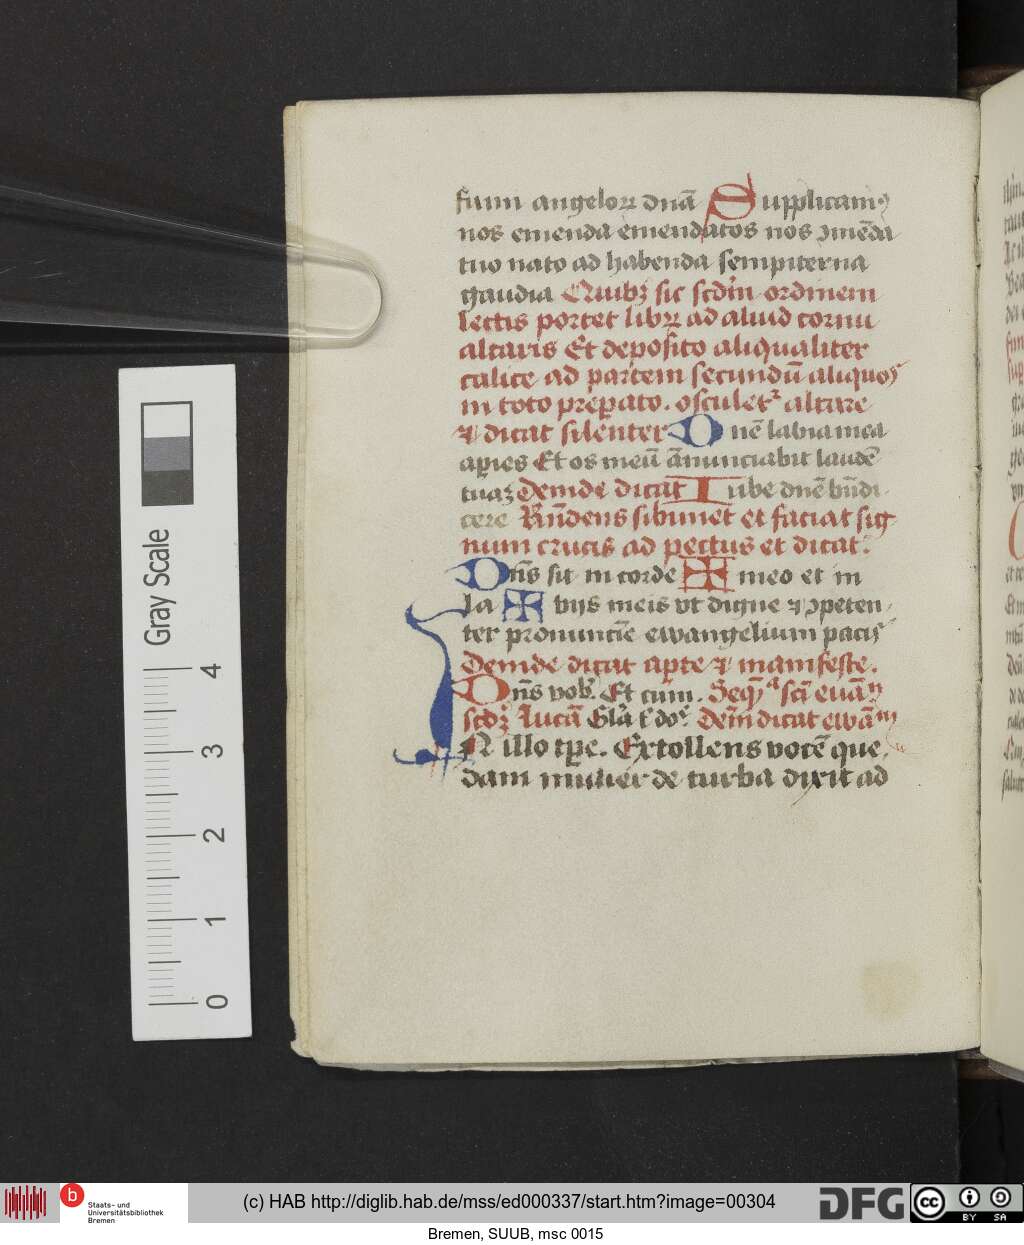 suum angeloꝝ dnā Supplicamꝰ
nos emenda emendatos nos ꝯmēda
tuo nato ad habenda sempiterna
gaudia Quibꝫ sic scdm ordinem
lectis portet libꝝ ad aliud cornu
altaris Et deposito aliqualiter
calice ad partem secundū aliquos
in toto preparato. osculetᷣ altare
⁊ dicat silenter Dnē labia mea
aꝑies Et os meū ānunciabit laudē
tuaꝫ Deinde dicat Iube dnē bn̄di
cere Bn̄dens sibimet et faciat sig
num crucis ad pectus et dicat.
Dn̄s sit in corde ✠ meo et in
la ✠ bijs meis vt digne ⁊ ꝯpeten
ter pronunctiē ewangelium pacis
Deinde dicat aꝑte ⁊ manifeste.
Dn̄s vob. Et cum. Seqᷓ scī euā
scdꝫ Lucā Glā t do Dein dicat ewām
IN illo tꝑe. Extollens vocē que
dam mulier de turba dixit ad
Gray Scale
4
3
2
1
0
b
Staats- und
Universitätsbibliothek
Bremen
(c) HAB http://diglib.hab.de/mss/ed000337/start.htm?image=00304
DFG
cc BY SA
Bremen, SUUB, msc 0015